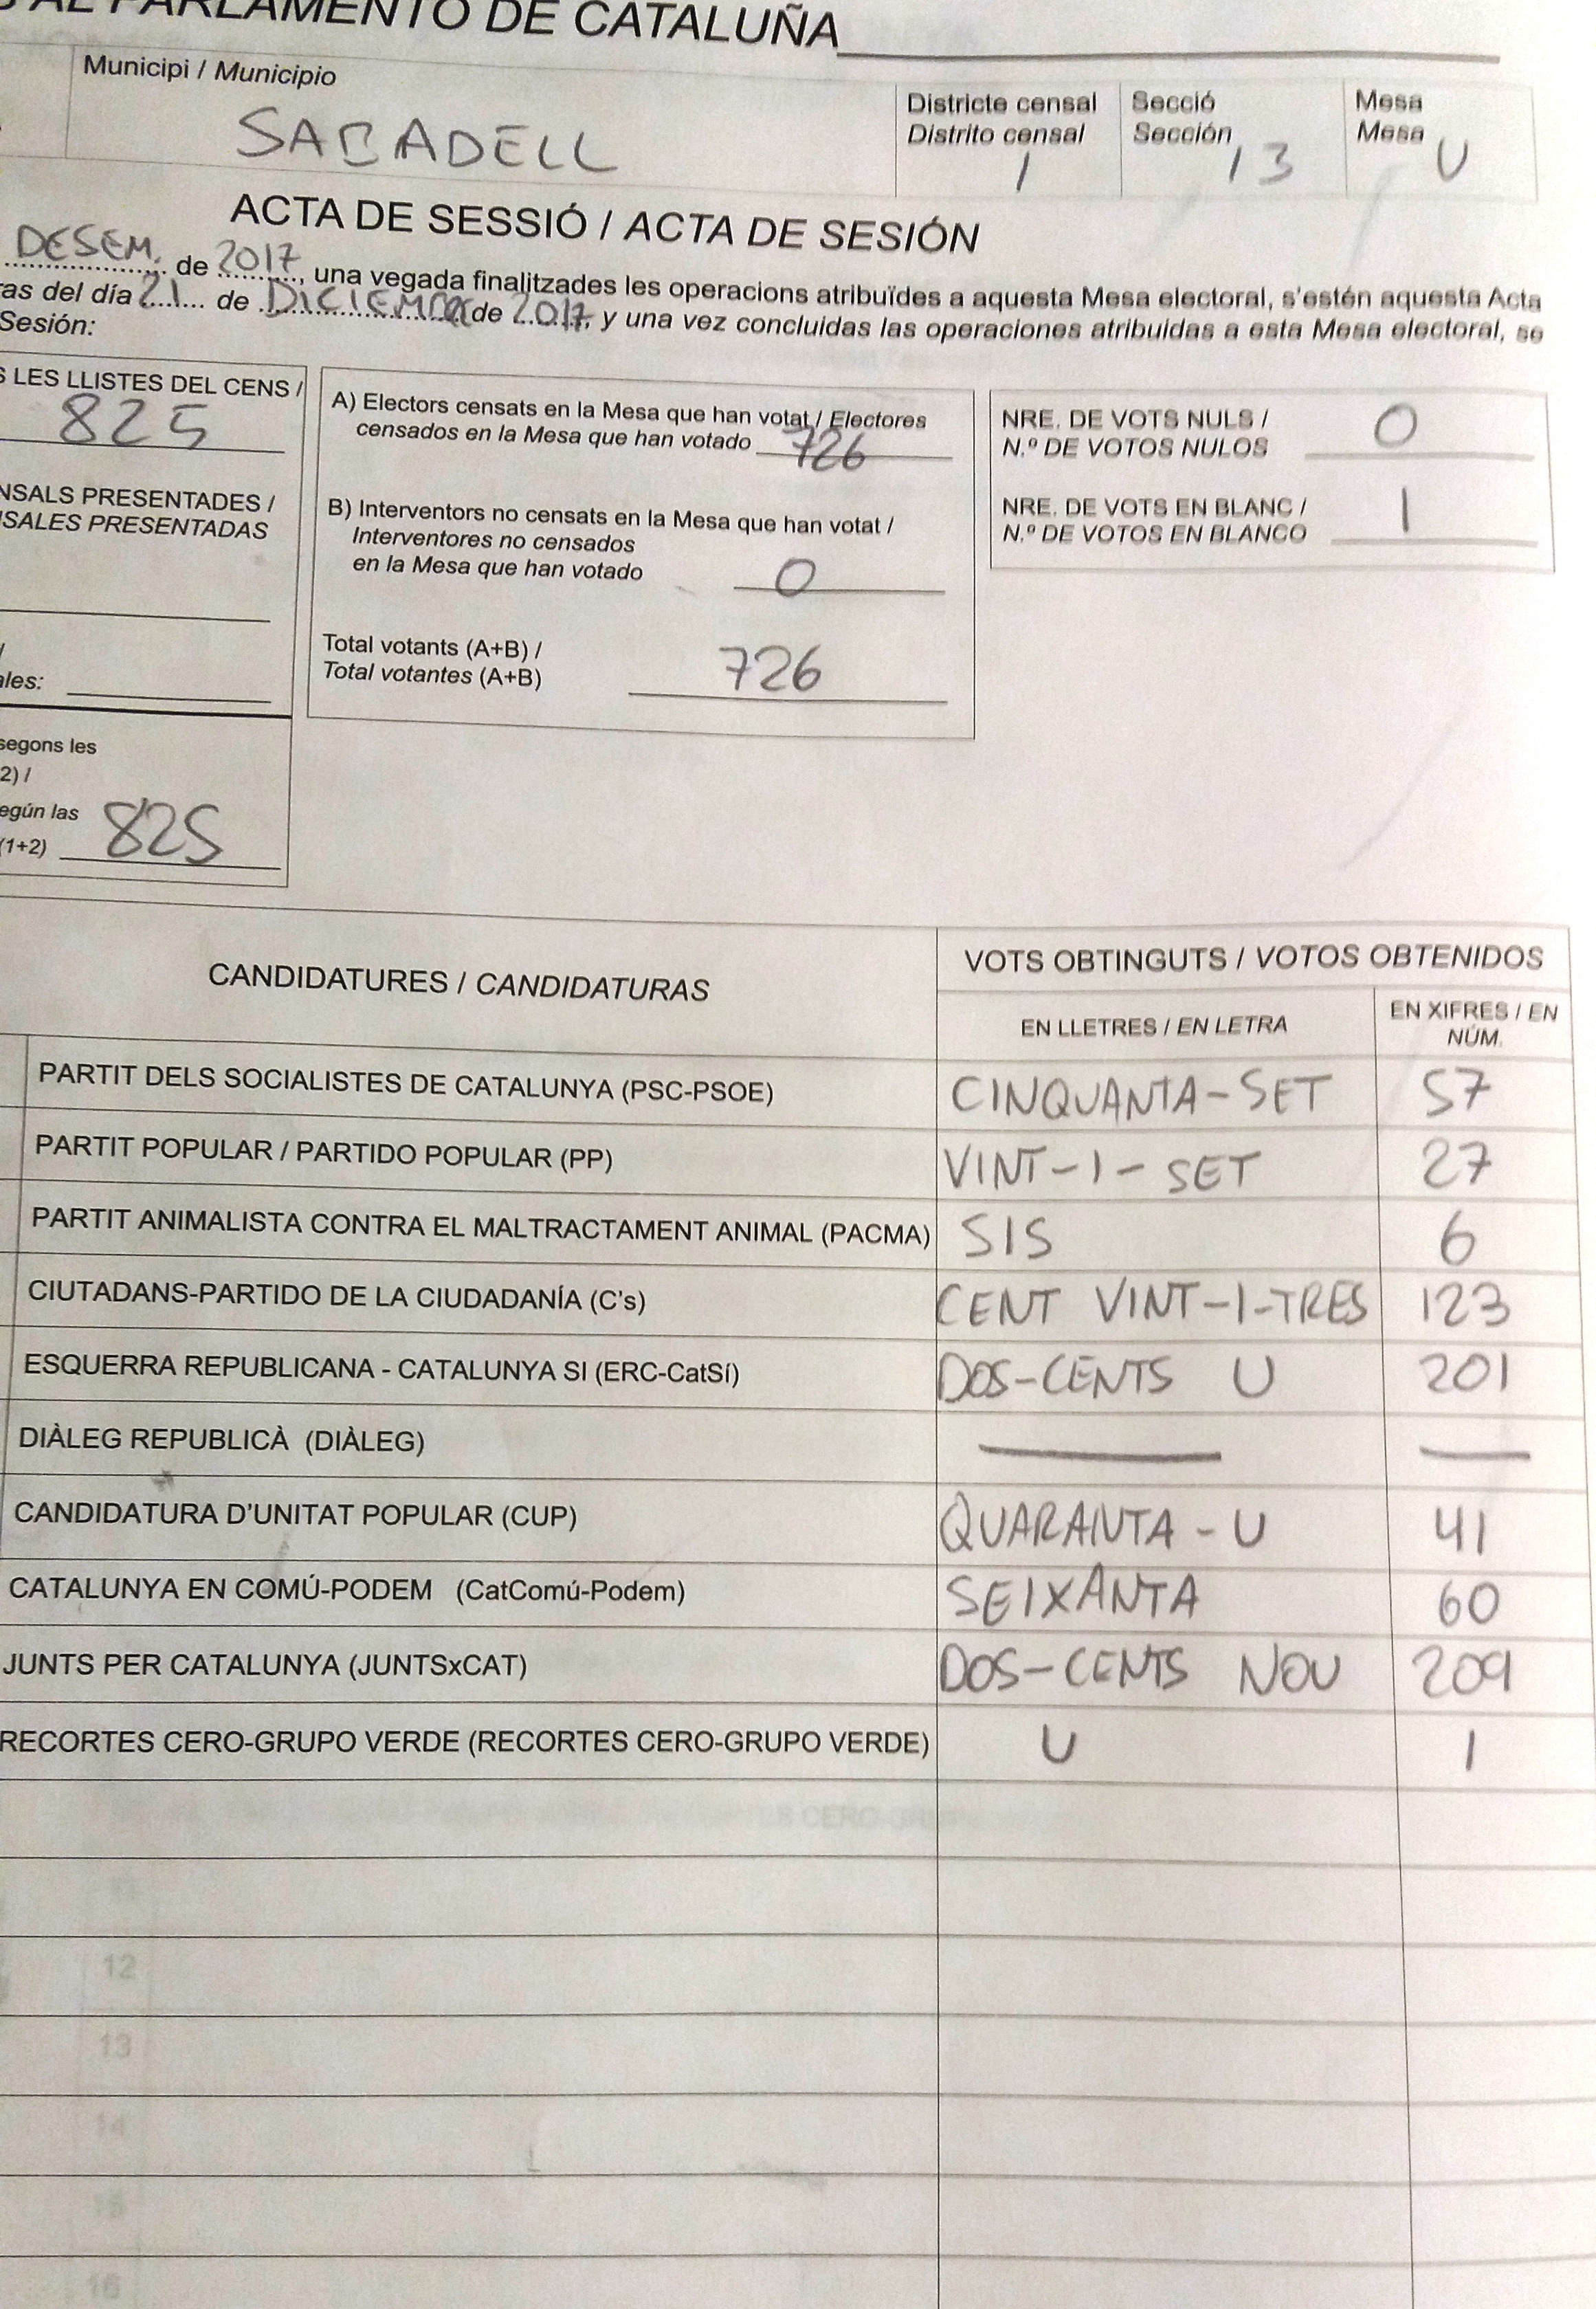 AL PARLAMENTO DE CATALUÑA
Municipi / Municipio
SABADELL
Districte censal
Distrito censal
1
Secció
Sección
13
Mesa
Mesa
U
ACTA DE SESSIÓ / ACTA DE SESIÓN
DESEM. de 2017, una vegada finalitzades les operacions atribuïdes a aquesta Mesa electoral, s'estén aquesta Acta
as del día 21 de DICIEMBRE de 2017, y una vez concluidas las operaciones atribuidas a esta Mesa electoral, se
Sesión:
S LES LLISTES DEL CENS /
825
NSALS PRESENTADES /
SALES PRESENTADAS
/
ales:
segons les
2) /
egún las
(1+2) 825
A) Electors censats en la Mesa que han votat / Electores
censados en la Mesa que han votado 726
B) Interventors no censats en la Mesa que han votat /
Interventores no censados
en la Mesa que han votado 0
Total votants (A+B) /
Total votantes (A+B) 726
NRE. DE VOTS NULS /
N.º DE VOTOS NULOS 0
NRE. DE VOTS EN BLANC /
N.º DE VOTOS EN BLANCO 1
CANDIDATURES / CANDIDATURAS
VOTS OBTINGUTS / VOTOS OBTENIDOS
EN LLETRES / EN LETRA
EN XIFRES / EN
NÚM.
PARTIT DELS SOCIALISTES DE CATALUNYA (PSC-PSOE) CINQUANTA-SET 57
PARTIT POPULAR / PARTIDO POPULAR (PP) VINT-I-SET 27
PARTIT ANIMALISTA CONTRA EL MALTRACTAMENT ANIMAL (PACMA) SIS 6
CIUTADANS-PARTIDO DE LA CIUDADANÍA (C's) CENT VINT-I-TRES 123
ESQUERRA REPUBLICANA - CATALUNYA SI (ERC-CatSí) DOS-CENTS U 201
DIÀLEG REPUBLICÀ (DIÀLEG) — —
CANDIDATURA D'UNITAT POPULAR (CUP) QUARANTA-U 41
CATALUNYA EN COMÚ-PODEM (CatComú-Podem) SEIXANTA 60
JUNTS PER CATALUNYA (JUNTSxCAT) DOS-CENTS NOU 209
RECORTES CERO-GRUPO VERDE (RECORTES CERO-GRUPO VERDE) U 1
12
13
14
15
16